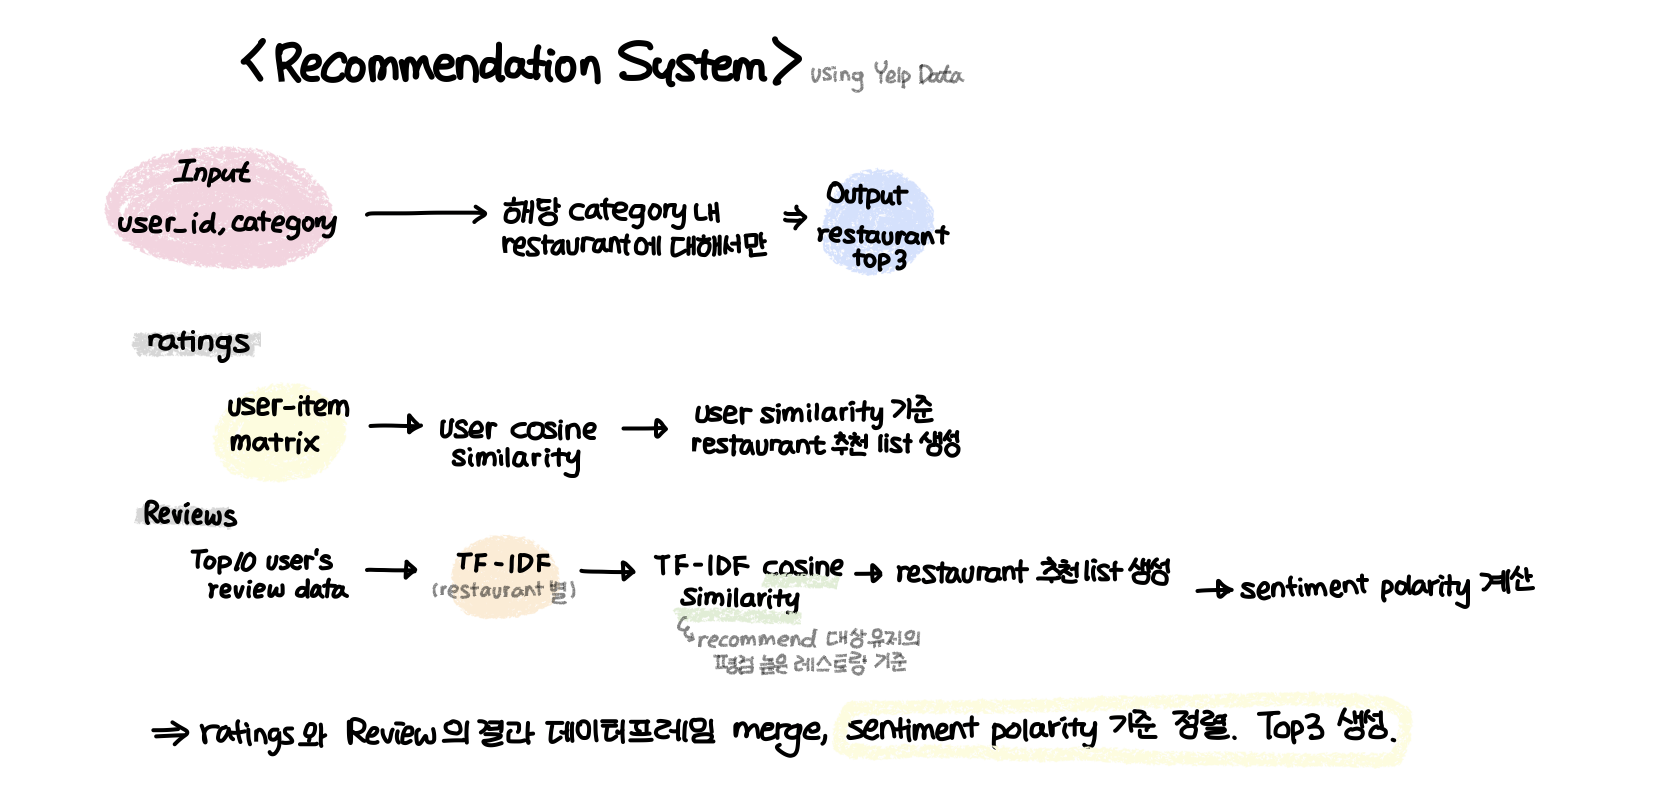 <Recommendation System> using Yelp Data
Input
user_id, category
해당 category 내
restaurant에 대해서만
⇒
Output
restaurant
top 3
ratings
user-item
matrix
user cosine
similarity
user similarity 기준
restaurant 추천 list 생성
Reviews
Top10 user's
review data
TF-IDF
(restaurant 별)
TF-IDF cosine
similarity
recommend 대상유저의
평점 높은 레스토랑 기준
restaurant 추천 list 생성
sentiment polarity 계산
⇒ ratings와 Review의 결과 데이터프레임 merge, sentiment polarity 기준 정렬. Top3 생성.